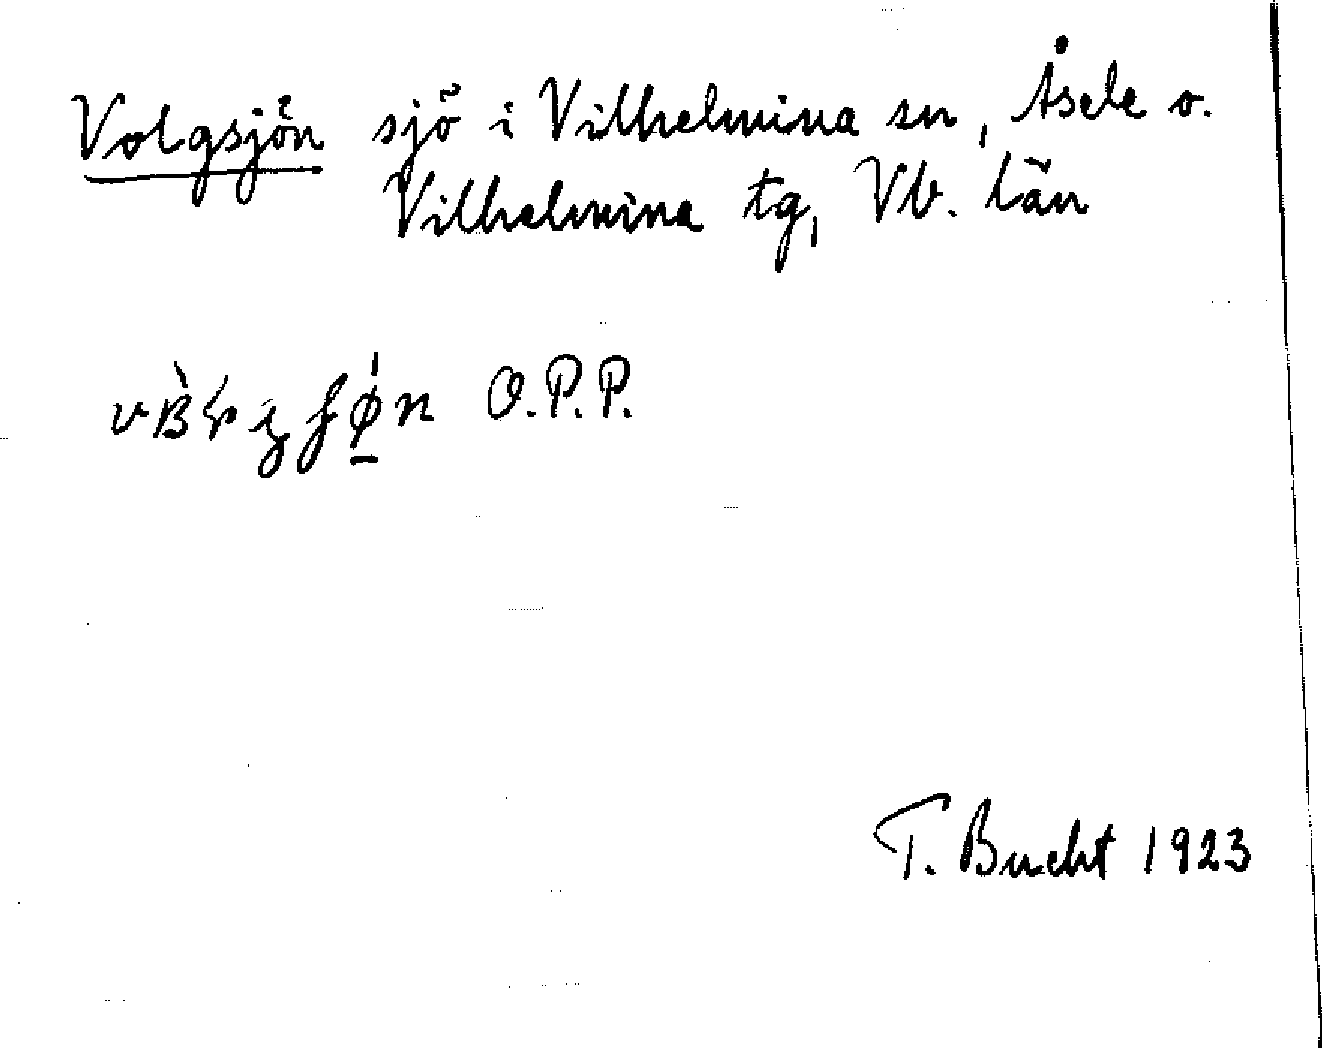 Volgsjön sjö i Vilhelmina sn, Åsele o.
Vilhelmina tg, Vb. län
O.P.P.
T. Bucht 1923